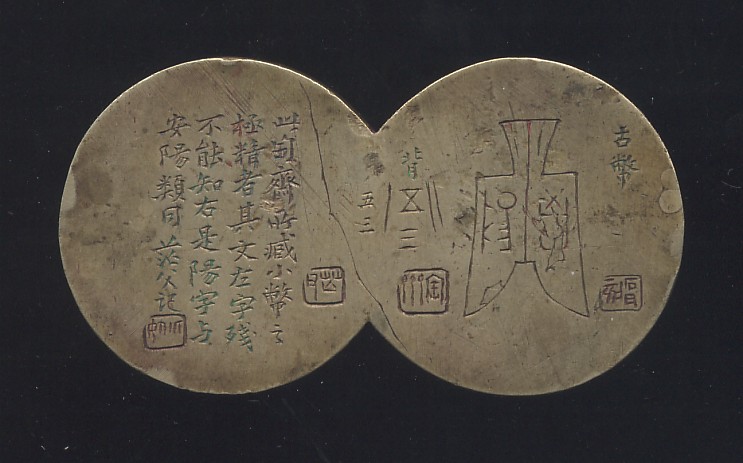 古幣一
背
五三
五三
此匋齋所藏小幣之
極精者其文左字殘
不能知右是陽字与
安陽類同茫父記